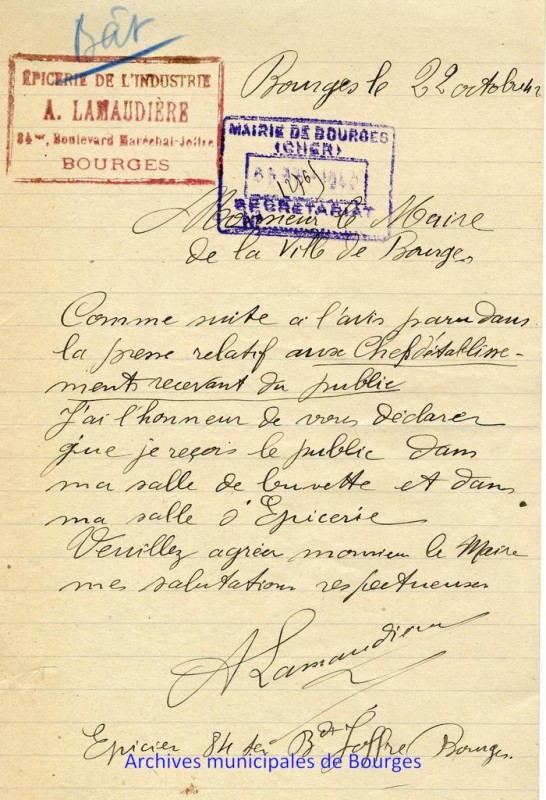 Bât
ÉPICERIE DE L'INDUSTRIE
A. LAMAUDIÈRE
84 ter, Boulevard Maréchal-Joffre
BOURGES
Bourges le 22 octobre
MAIRIE DE BOURGES
(CHER)
SECRETARIAT
Monsieur le Maire
de la Ville de Bourges
Comme suite a l'avis paru dans
la presse relatif aux Chefs d'établisse-
ments recevant du public
J'ai l'honneur de vous déclarer
que je reçois le public dans
ma salle de buvette et dans
ma salle d'Epicerie
Veuillez agréer monsieur le Maire
mes salutations respectueuses
A Lamaudière
Epicier 84 ter Bd Joffre Bourges.
Archives municipales de Bourges